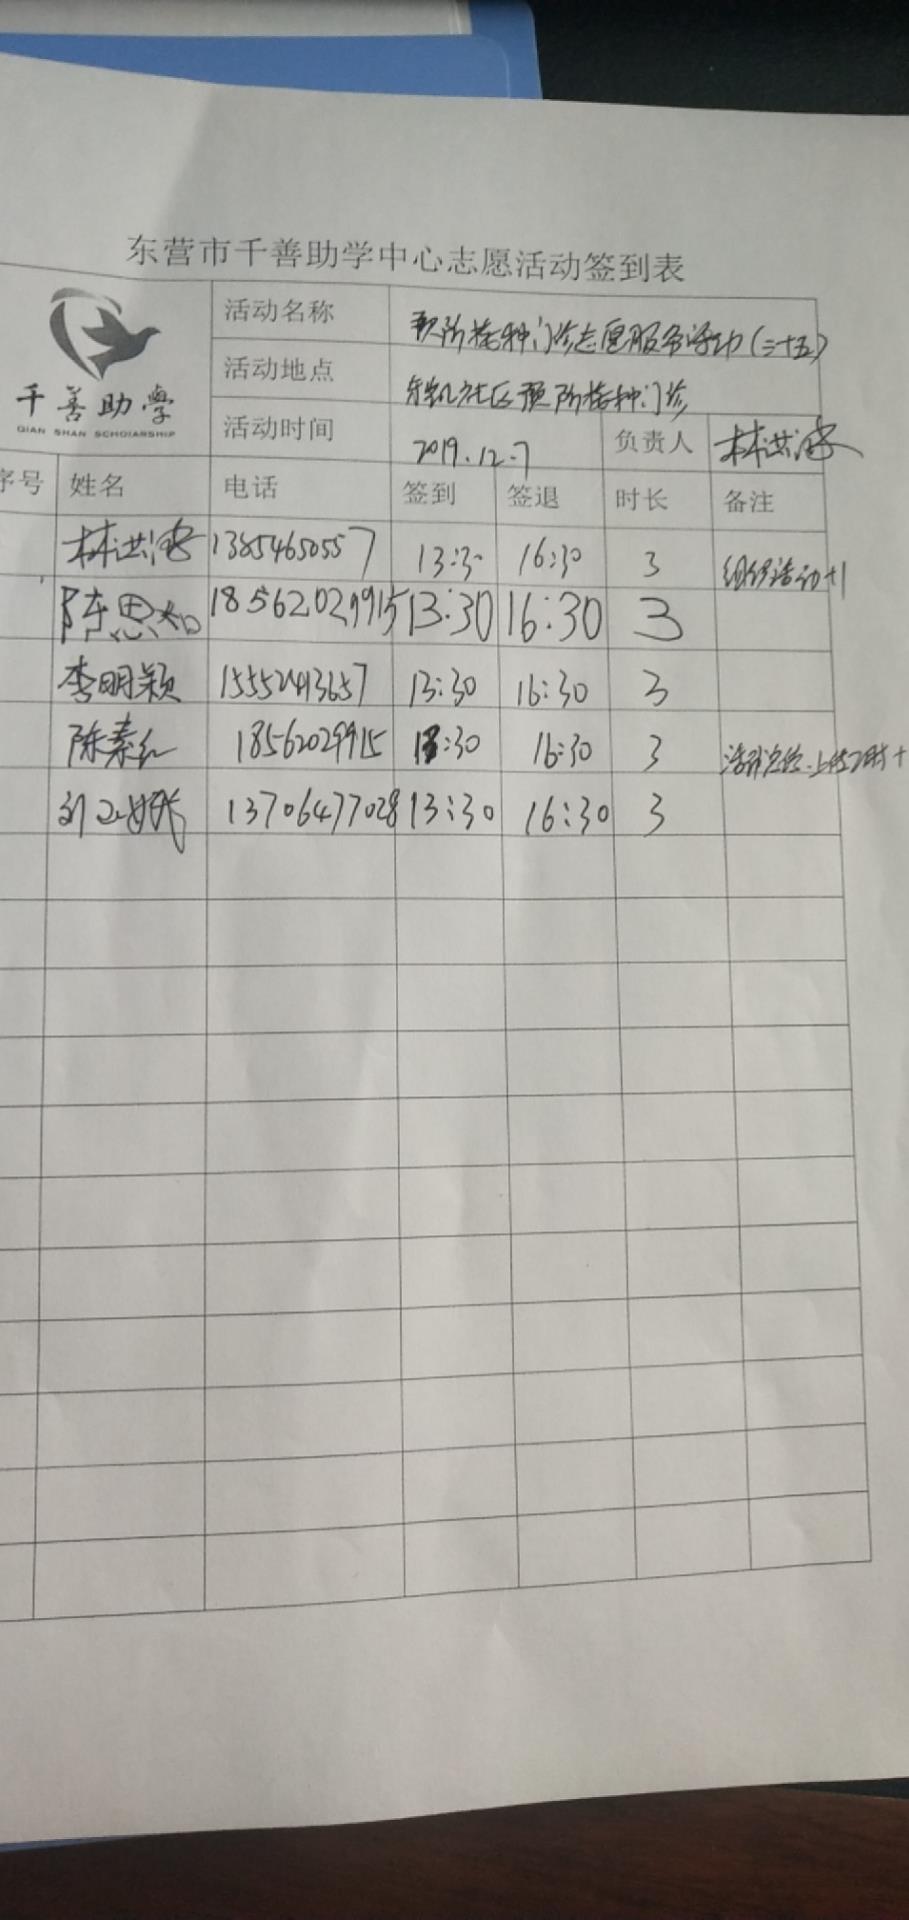 东营市千善助学中心志愿活动签到表
千善助學
QIAN SHAN SCHOIARSHIP
活动名称 预防接种门诊志愿服务活动(二十五)
活动地点 社区预防接种门诊
活动时间 2019.12.7 负责人 林洪
序号 姓名 电话 签到 签退 时长 备注
林洪 13854650557 13:30 16:30 3 组织活动+1
陈思知 18562029915 13:30 16:30 3
李明颖 15552413657 13:30 16:30 3
陈素红 18562029915 13:30 16:30 3 活动总结、上传
刘 13706477028 13:30 16:30 3